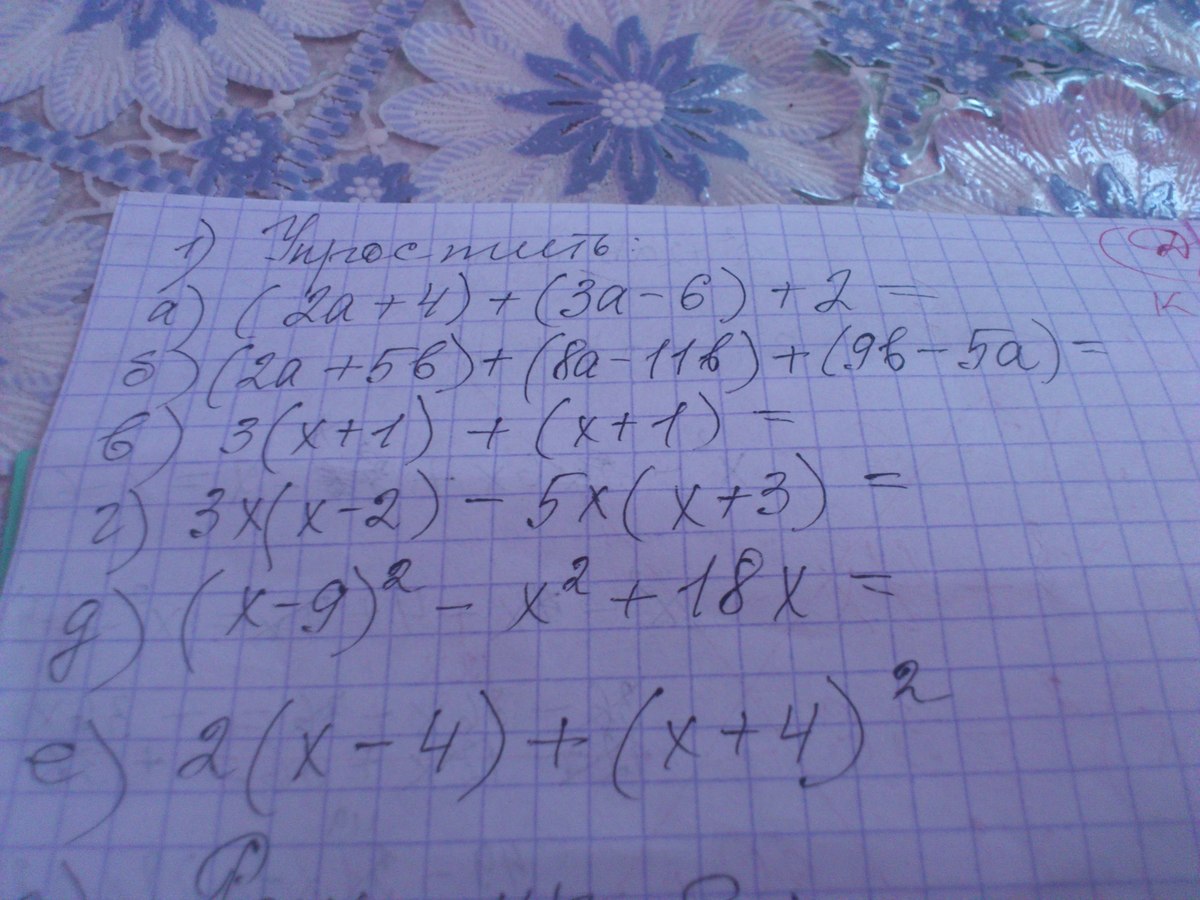 1) Упростить:
а) (2a+4)+(3a-6)+2=
б) (2a+5b)+(8a-11b)+(9b-5a)=
в) 3(x+1)+(x+1)=
г) 3x(x-2)-5x(x+3)=
д) (x-9)²-x²+18x=
е) 2(x-4)+(x+4)²